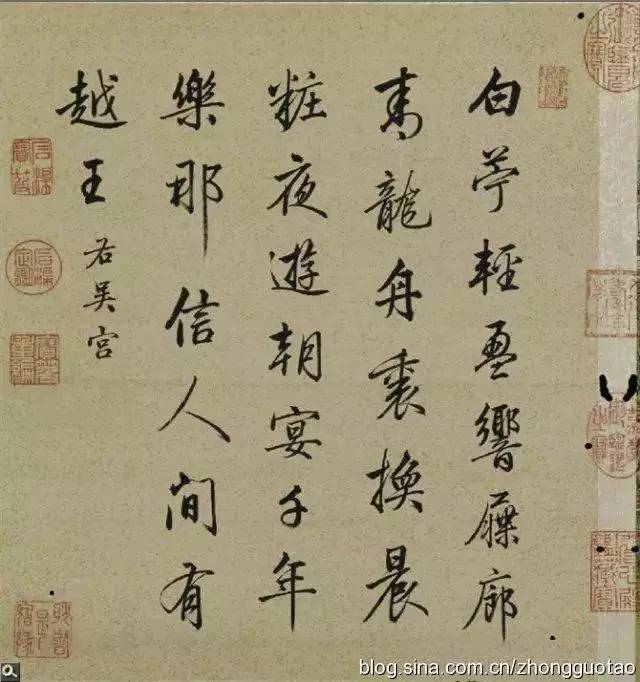 白苧輕盈響屧廊
青龍舟裏換晨
粧夜遊朝宴千年
樂那信人間有
越王
右吳宮
blog.sina.com.cn/zhongguotao